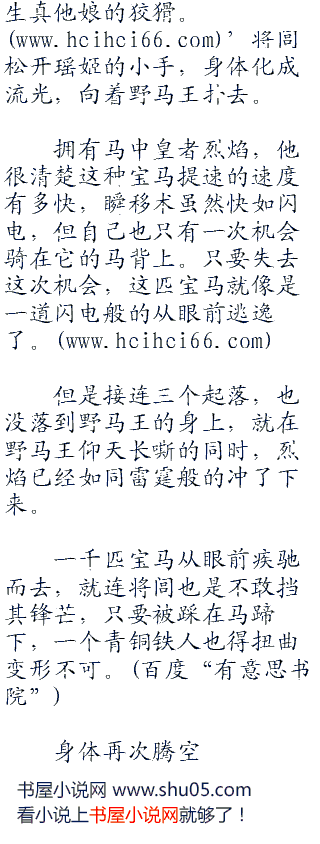 生真他娘的狡猾。
(www.hcihci66.com)’将闾
松开瑶姬的小手，身体化成
流光，向着野马王扑去。
拥有马中皇者烈焰，他
很清楚这种宝马提速的速度
有多快，瞬移术虽然快如闪
电，但自己也只有一次机会
骑在它的马背上。只要失去
这次机会，这匹宝马就像是
一道闪电般的从眼前逃逸
了。(www.hcihci66.com)
但是接连三个起落，也
没落到野马王的身上，就在
野马王仰天长嘶的同时，烈
焰已经如同雷霆般的冲了下
来。
一千匹宝马从眼前疾驰
而去，就连将闾也是不敢挡
其锋芒，只要被踩在马蹄
下，一个青铜铁人也得扭曲
变形不可。(百度“有意思书
院”)
身体再次腾空
书屋小说网 www.shu05.com
看小说上书屋小说网就够了！